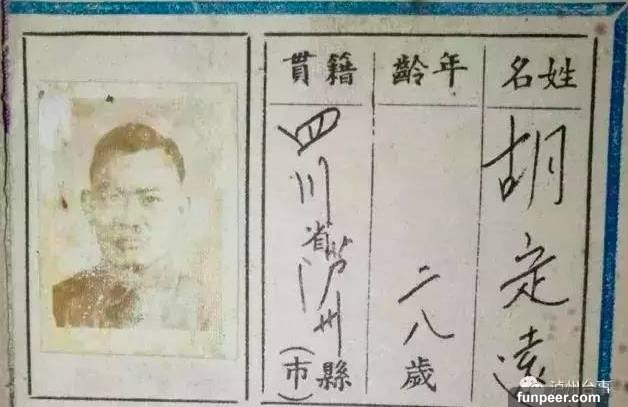 姓名
胡定遠
年齡
二八歲
籍貫
四川省瀘州縣(市)
funpeer.com